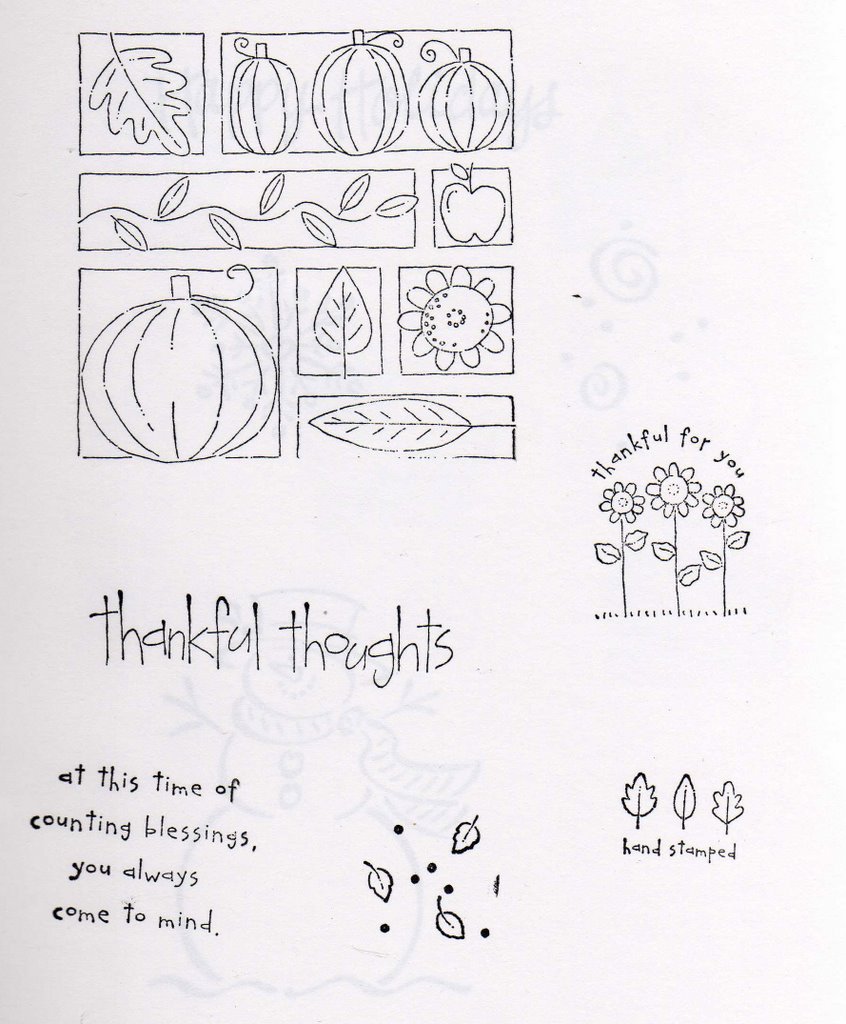 thankful for you
thankful thoughts
at this time of
counting blessings,
you always
come to mind.
hand stamped